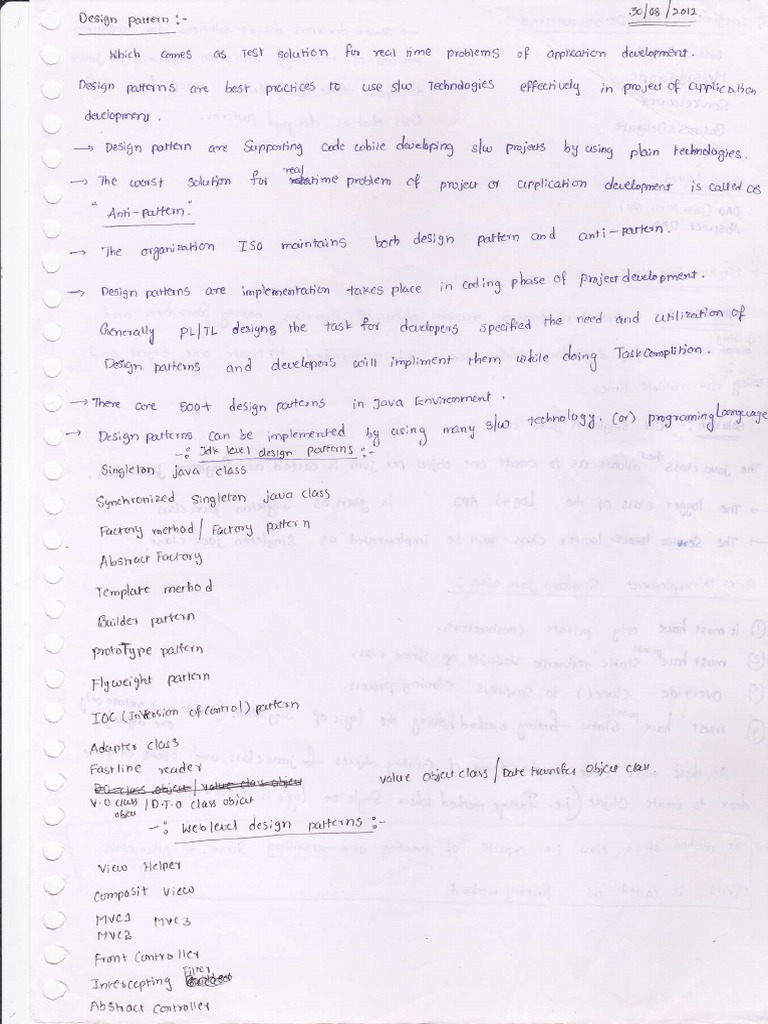 30/08/2012
Design pattern :-
Which comes as Test solution for real time problems of application development.
Design patterns are best practices to use s/w Technologies effectively in project of application
development.
→ Design pattern are Supporting code while developing s/w projects by using plain technologies.
→ The worst solution for real time problem of project or application development is called as
"Anti-pattern."
→ The organization ISO maintains both design pattern and anti-pattern.
→ Design patterns are implementation takes place in coding phase of project development.
Generally PL/TL designs the task for developers specified the need and utilization of
Design patterns and developers will impliment them while doing Task complition.
→ There are 500+ design patterns in Java Environment.
→ Design patterns can be implemented by using many s/w technology. (or) programing Language
-: Jdk level design patterns :-
Singleton java class
Synchronized Singleton java class
Factory method / Factory pattern
Abstract Factory
Template method
Builder pattern
ProtoType pattern
Flyweight pattern
IOC (Inversion of control) pattern
Adapter class
Fastline reader
value object class / Date transfer object class
V.O class / D.T.O class object
object
-: Web level design patterns :-
View Helper
Composit view
MVC1 MVC3
MVC2
Front Controller
Intercepting Filter
Abstract Controller